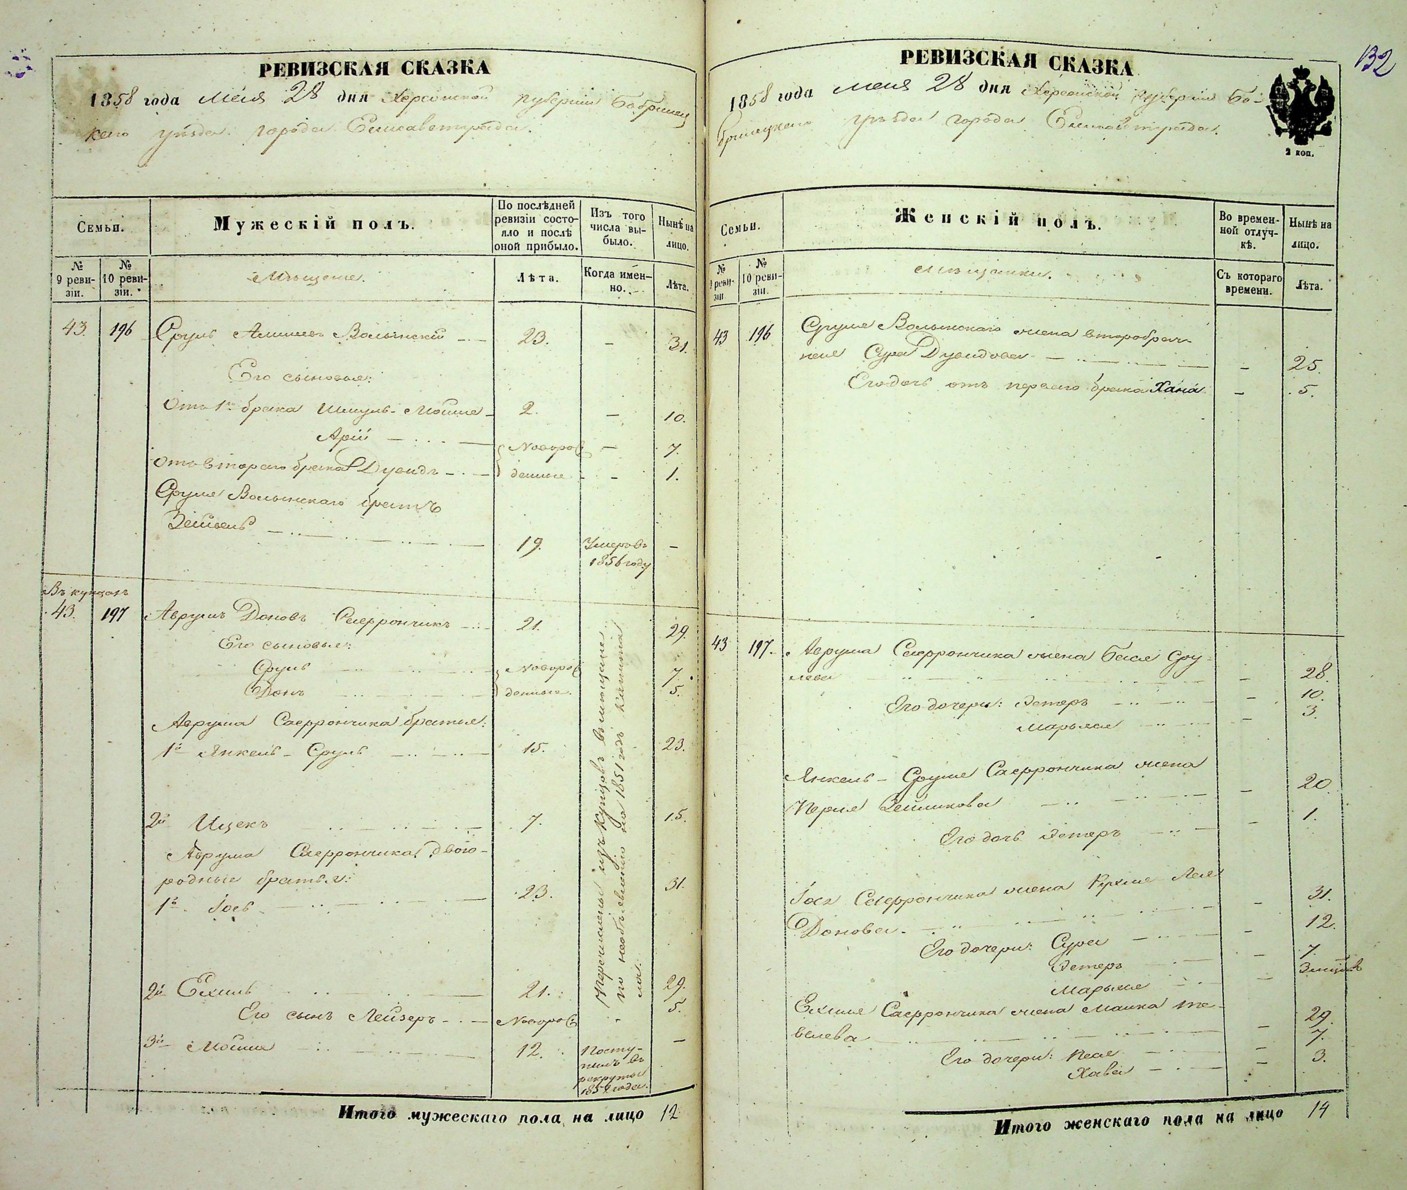 РЕВИЗСКАЯ СКАЗКА
1858 года Мая 28 дня Херсонской губернии Бобринец
каго уѣзда города Елисаветграда.
Семьи.
Мужескій полъ.
По послѣдней ревизіи состояло и послѣ оной прибыло.
Изъ того числа выбыло.
Нынѣ на лицо.
№ 9 ревизіи.
№ 10 ревизіи.
Мѣщане.
Лѣта.
Когда именно.
Лѣта.
43 196 Сруль Волынскій 23. — 31.
Его сыновья:
отъ 1го брака Шмуль-Мошка 2. — 10.
Арій Новорож — 7.
отъ втораго брака Дувидъ денные — 1.
Сруля Волынскаго братъ
Зейвель 19. Умеръ въ 1856 году —
Въ купцахъ
43. 197 Аврумъ Доновъ 21. 29.
Его сыновья:
Сруль Новорож 7.
Донъ денные 5.
Аврума братья:
1й Янкель-Сруль 15. 23.
2й Ицекъ 7. 15.
Аврума двою-
родные братья:
1й Іось 23. 31.
2й Ехиль 21. 29.
Его сынъ Лейзеръ Новорож 5.
3й Мошка 12. Поступилъ въ рекруты 185 года. —
Перечислены изъ купцовъ въ мѣщане
по необъявленію за 1851 годъ капитала.
Итого мужескаго пола на лицо 12
132
РЕВИЗСКАЯ СКАЗКА
1858 года Мая 28 дня Херсонской губерніи Бо-
бринецкаго уѣзда города Елисаветграда.
2 коп.
Семьи.
Женскій полъ.
Во временной отлучкѣ.
Нынѣ на лицо.
№ 9 ревизіи
№ 10 ревизіи.
Мѣщанки.
Съ котораго времени.
Лѣта.
43 196 Сруля Волынскаго жена второбрач-
ная Сура Дувидова — 25.
Его дочь отъ перваго брака Хана — 5.
43 197. Аврума жена Бася Сру-
лева — 28.
Его дочери: Эстеръ — 10.
Марьяся 3.
Янкель-Сруля жена
Перля Зейликова — 20.
Его дочь Эстеръ — 1.
Іося жена Лея
Донова — 31.
Его дочери: Сура — 12.
Эстеръ 7.
Марьяся 3 мѣс
Ехиля жена Малка Те-
велева — 29.
Его дочери: Песя — 7.
Хава — 3.
Итого женскаго пола на лицо 14